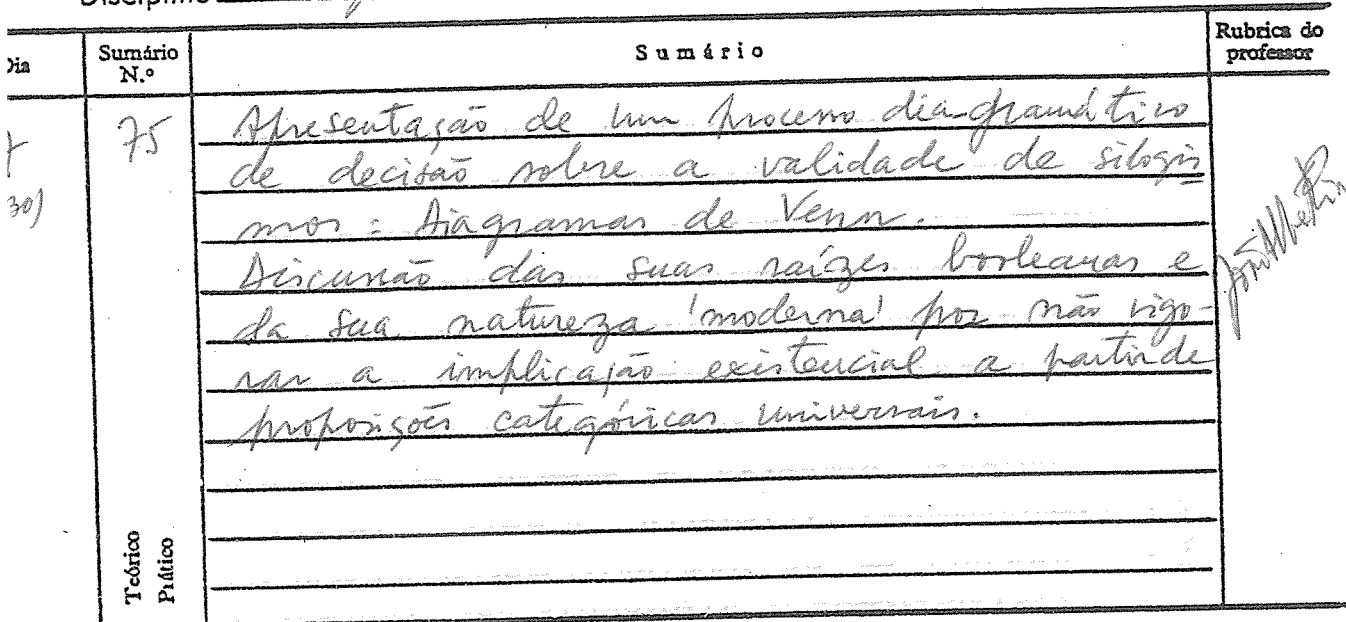 Disciplina
Dia
Sumário
N.º
Sumário
Rubrica do
professor
30)
75
Apresentação de um processo diagramático
de decisão sobre a validade de silogis
mos: Diagramas de Venn.
Discussão das suas raízes booleanas e
da sua natureza 'moderna' por não vigo-
rar a implicação existencial a partir de
proposições categóricas universais.
Teórico
Prático